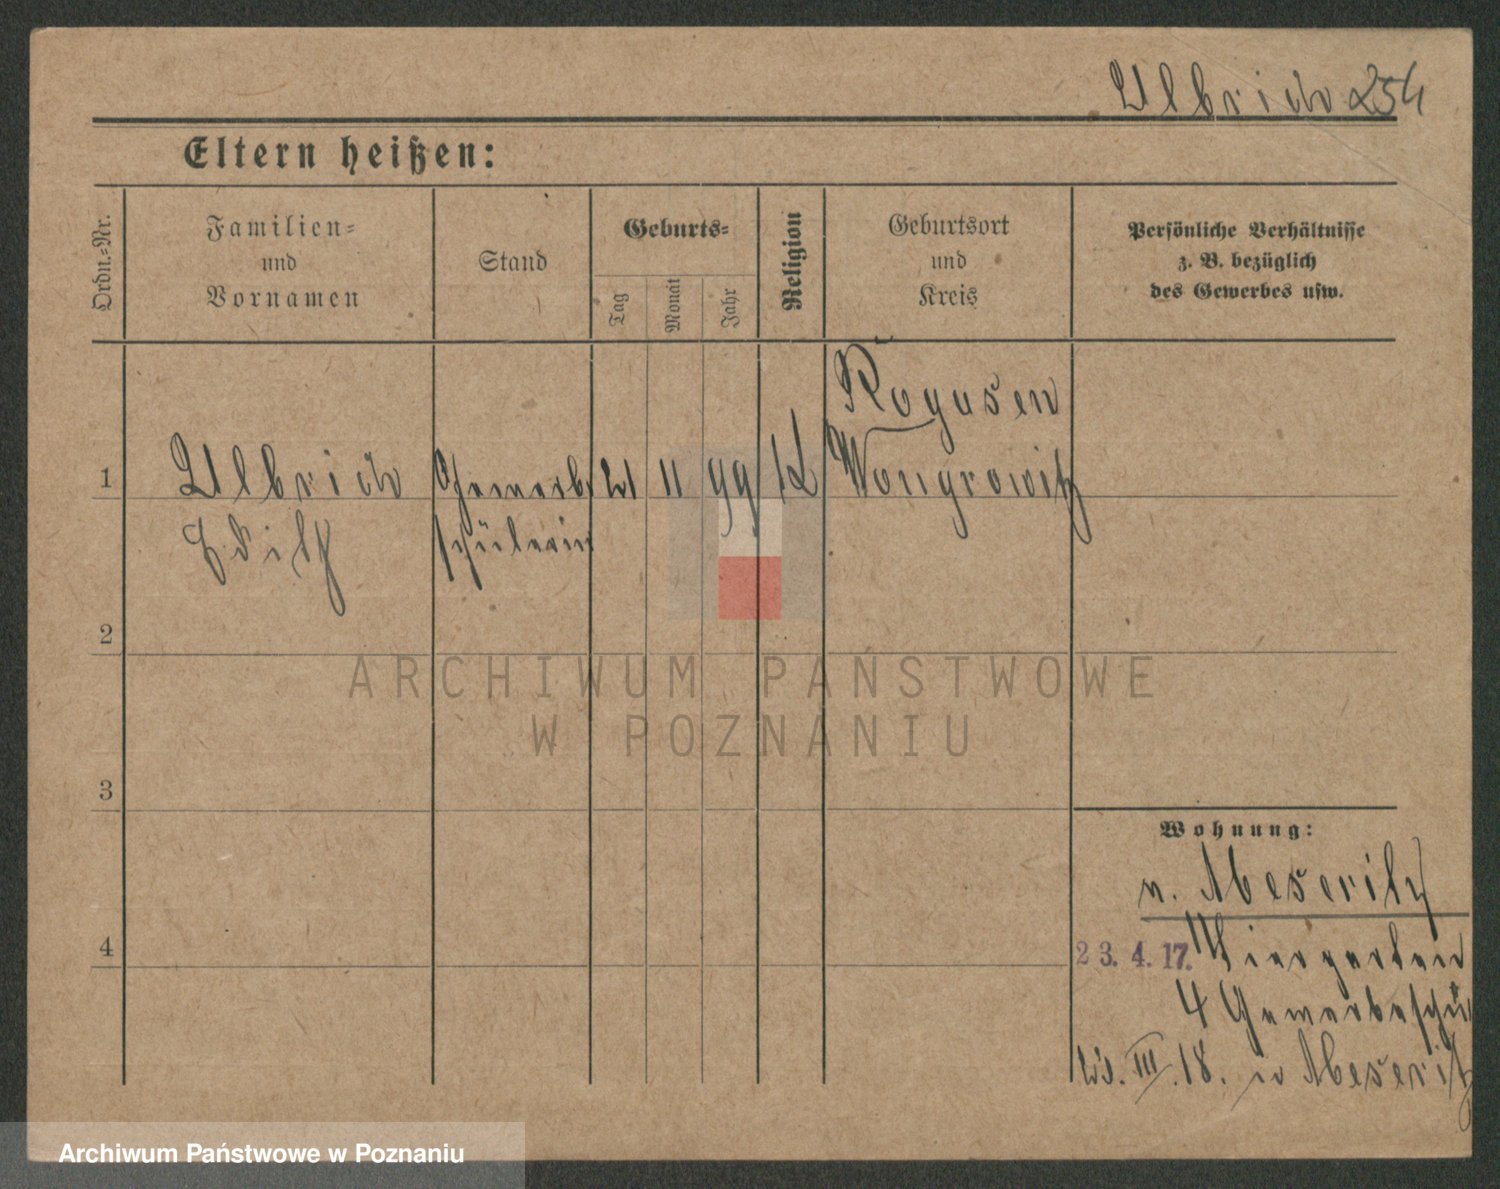 Ulbrich 254
Eltern heißen:
Ordn.=Nr.
Familien=
und
Vornamen
Stand
Geburts=
Tag
Monat
Jahr
Religion
Geburtsort
und
Kreis
Persönliche Verhältnisse
z. B. bezüglich
des Gewerbes usw.
1
Ulbrich
Edith
Gewerbe
schülerin
11
99
Rogasen
Wongrowitz
2
3
4
Wohnung:
n. Meseritz
23. 4. 17. Tiergarten
4 Gewerbeschu
III. 18. n Meseritz
ARCHIWUM PAŃSTWOWE
W POZNANIU
Archiwum Państwowe w Poznaniu